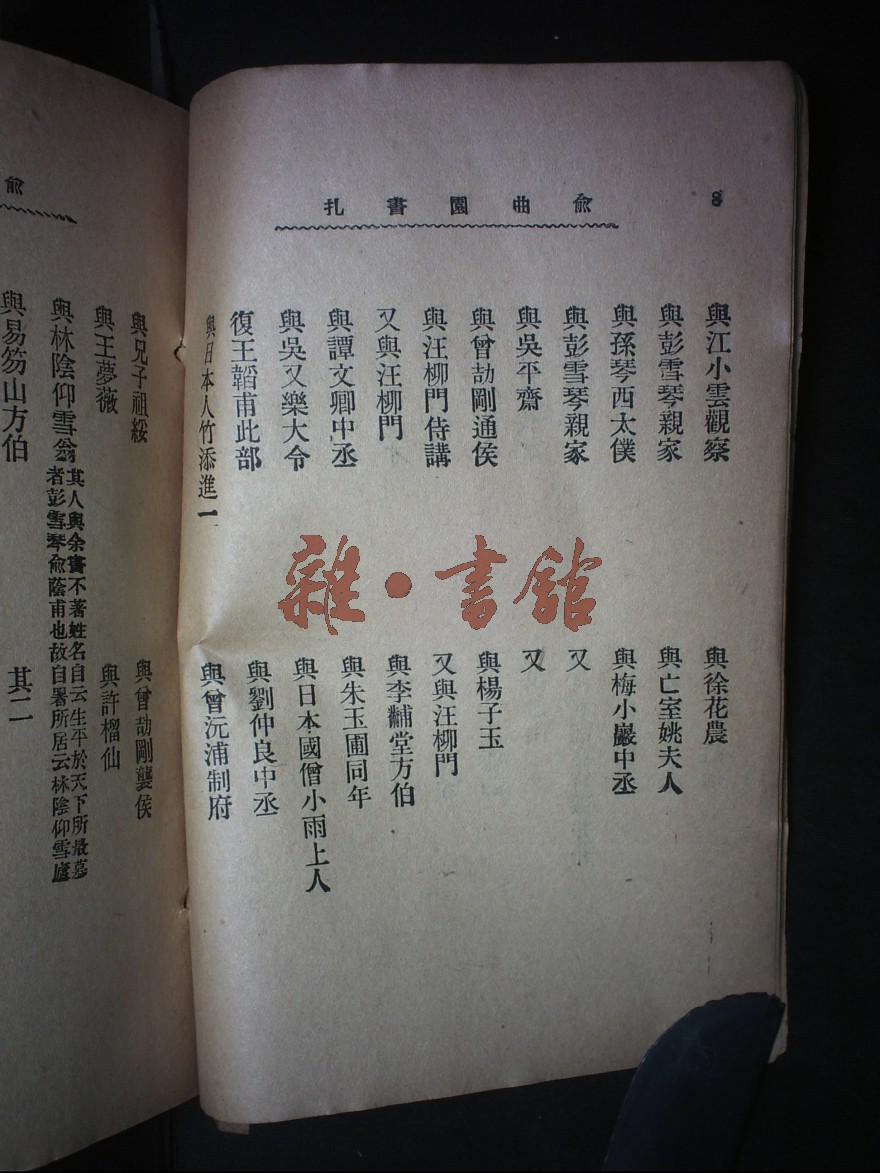 俞曲園書札
8
與江小雲觀察
與彭雪琴親家
與孫琴西太僕
與彭雪琴親家
與吳平齋
與曾劼剛通侯
與汪柳門侍講
又與汪柳門
與譚文卿中丞
與吳又樂大令
復王韜甫比部
與日本人竹添進一
與徐花農
與亡室姚夫人
與梅小巖中丞
又
又
與楊子玉
又與汪柳門
與李黼堂方伯
與朱玉圃同年
與日本國僧小雨上人
與劉仲良中丞
與曾沅浦制府
雜·書館
俞
與兄子祖綏
與王夢薇
與林陰仰雪翁
其人與余書不著姓名自云生平於天下所最慕
者彭雪琴俞蔭甫也故自署所居云林陰仰雪廬
與易笏山方伯
與曾劼剛襲侯
與許榴仙
其二